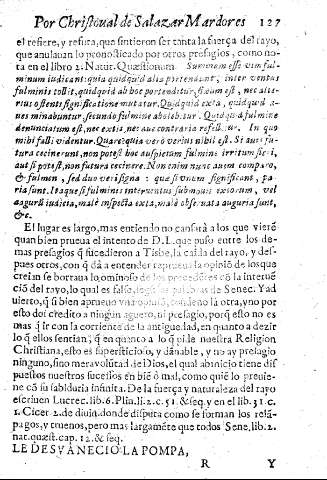 Por Christoual de Salazar Mardores 127
el refiere, y refuta, que sintieron ser tanta la fuerça del rayo,
que anulauan lo pronosticado por otros presagios, como no-
ta en el libro 2. Natur. Quæstionum Summam esse vim ful-
minum iudicant: quia quidquid alia portendunt, interuentus
fulminis tollit, quidquid ab hoc portenditur, fixum est, nec alte-
rius ostenti significatione mutatur. Quidquid exta, quidquid a-
ues minabuntur, secundo fulmine abolebitur. Quidquid fulmine
denunciatum est, nec extis, nec aue contraria refellitur. In quo
mihi falli videntur. Quare quia vero verius nihil est. Si aues fu-
tura cecinerunt, non potest hoc auspicium fulmine irritum fieri,
aut si potest, non futura cecinere. Non enim nunc auem comparo,
& fulmen, sed duo veri signa: que si verum significant, pa-
ria sunt. Itaque si fulminis interuentus submouit extorum, vel
augurij iudicia, male inspecta exta, male obseruata auguria sunt,
&c.
El lugar es largo, mas entiendo no cansará a los que vierē
quan bien prueua el intento de D. L. que puso entre los de-
mas presagios q̃ sucedieron a Tisbe, la caida del rayo, y des-
pues otros, con q̃ dá a entender la opiniō de los que
creían se borraua lo ominoso de los precedētes cō la interuē-
ciō del rayo, lo qual es falso, palabras de Senec. Y ad
uierto, q̃ si bien aprueuo vna opiniō, condeno lá otra, y no por
esto doi credito a ningun aguero, ni presagio, porq̃ esto no es
mas q̃ ir con la corriente de la antiguedad, en quanto a dezir
lo q̃ ellos sentian; q̃ en quanto a lo q̃ pide nuestra Religion
Christiana, esto es supersticioso, y dānable, y no ay presagio
ninguno, sino mera volūtad de Dios, el qual abinicio tiene dis
puestos nuestros sucessos en biē ò mal, como quiē lo preuie-
ne cō su sabiduria infinita. De la fuerça y naturaleza del rayo
escriuen Lucrec. lib. 6. Plin. li. 2. c. 51. & seq. y en el lib. 31. c.
1. Cicer. 2. de diuin. donde disputa como se forman los relā-
pagos, y truenos, pero mas largamente que todos Sene. lib. 2.
nat. quæst. cap. 12. & seq.
LE DESVANECIO LA POMPA,
R Y